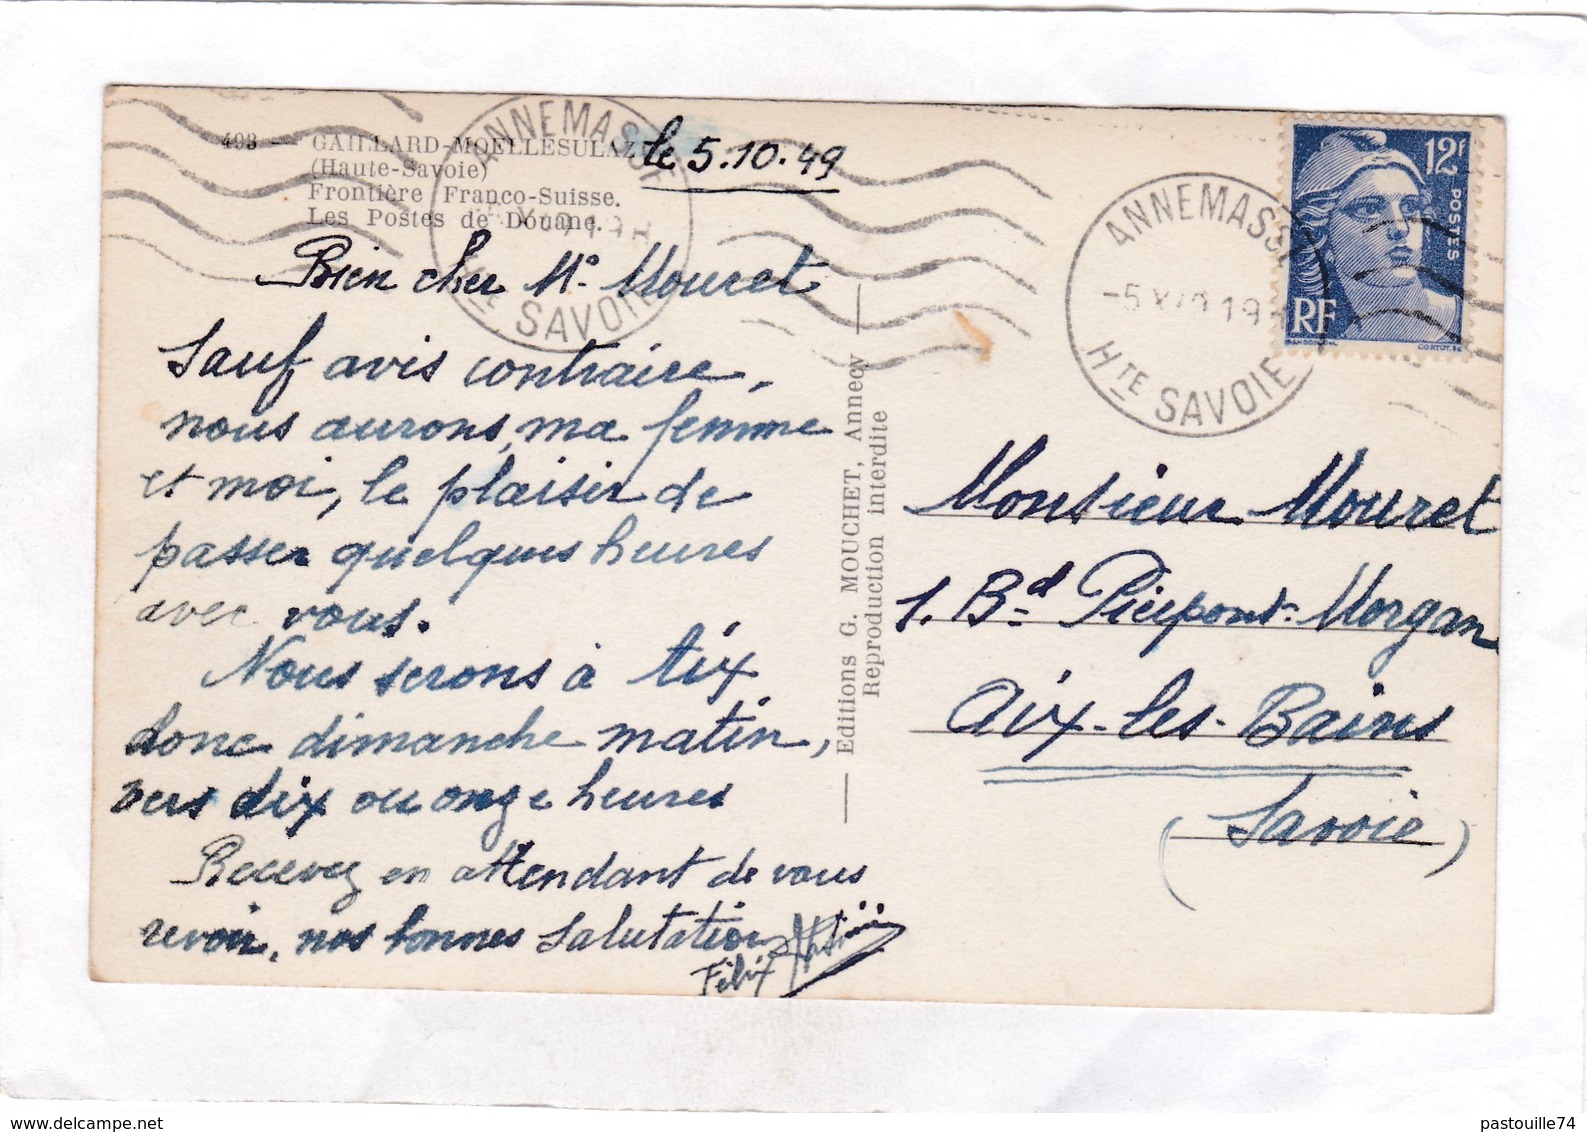 493 — GAILLARD-MOELLESULAZ
(Haute-Savoie)
Frontière Franco-Suisse.
Les Postes de Douane.
le 5.10.49
Bien cher Mr Mouret
Sauf avis contraire,
nous aurons, ma femme
et moi, le plaisir de
passer quelques heures
avec vous.
Nous serons à Aix
donc dimanche matin,
vers dix ou onze heures
Recevez en attendant de vous
revoir, nos bonnes salutations
Félix
Editions G. MOUCHET, Annecy
Reproduction interdite
ANNEMASSE
Hte SAVOIE
ANNEMASSE
-5 X 49 19
HTE SAVOIE
12f
POSTES
RF
GANDON DEL.
CORTOT, SC
Monsieur Mouret
1. Bd Pierpont-Morgan
Aix-les-Bains
(Savoie)
pastouille74